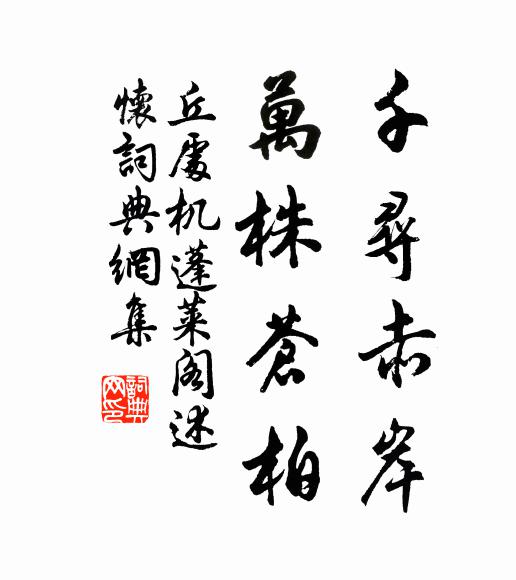 千尋赤岸
萬株蒼柏
丘處机蓬萊阁述
懷詞典網集
詞典网印